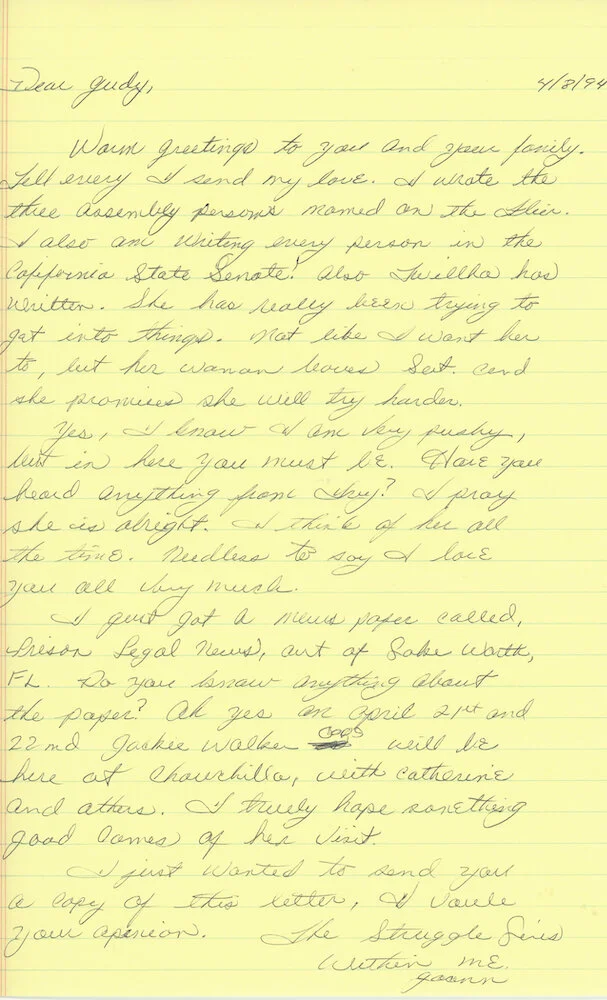 Dear Judy, 4/8/94
Warm greetings to you and your family.
Tell every I send my love. I wrote the
three assembly person's named on the flier.
I also am writing every person in the
California State Senate! Also Twillha has
written. She has really been trying to
get into things. Not like I want her
to, but her woman leaves Sat. and
she promises she will try harder.
Yes, I know I am very pushy,
but in here you must be. Have you
heard anything from ? I pray
she is alright. I think of her all
the time. Needless to say I love
you all very much.
I just got a news paper called,
Prison Legal News, out of Lake Worth,
FL. Do you know anything about
the paper? Oh yes on April 21st and
22nd Jackee Walker will be
here at Chowchilla, with Catherine
and others. I truely hope something
good comes of her visit.
I just wanted to send you
a copy of this letter, I value
your openion. The Struggle Lives
Within ME.
Joann